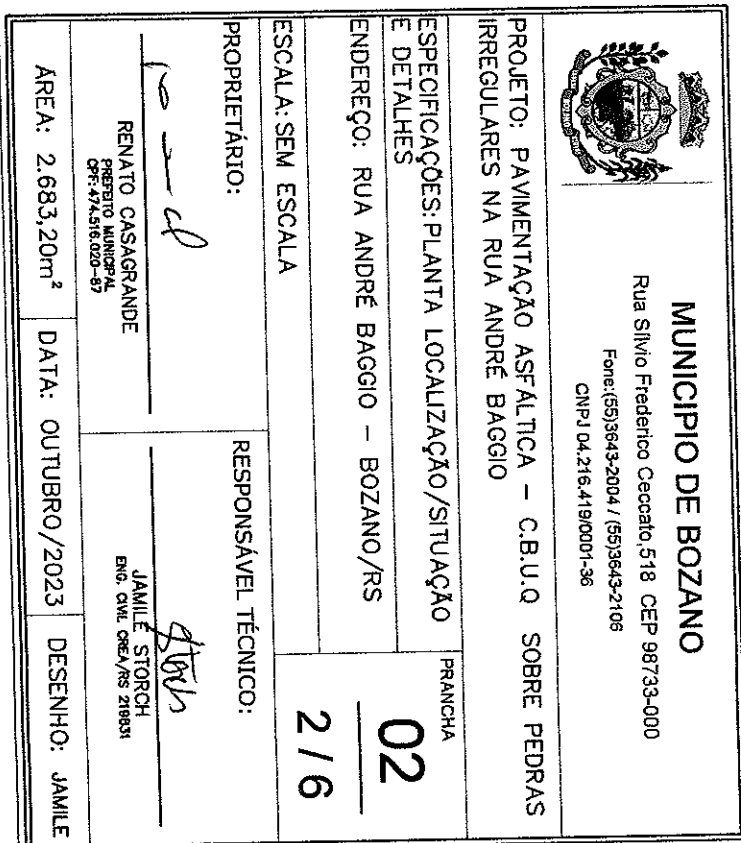 MUNICIPIO DE BOZANO
Rua Sílvio Frederico Ceccato,518 CEP 98733-000
Fone:(55)3643-2004 / (55)3643-2106
CNPJ 04.216.419/0001-36
PROJETO: PAVIMENTAÇÃO ASFÁLTICA – C.B.U.Q SOBRE PEDRAS
IRREGULARES NA RUA ANDRÉ BAGGIO
ESPECIFICAÇÕES: PLANTA LOCALIZAÇÃO/SITUAÇÃO
E DETALHES
PRANCHA
02
2/6
ENDEREÇO: RUA ANDRÉ BAGGIO – BOZANO/RS
ESCALA: SEM ESCALA
PROPRIETÁRIO:
RENATO CASAGRANDE
PREFEITO MUNICIPAL
CPF: 474.516.020-87
RESPONSÁVEL TÉCNICO:
Storch
JAMILE STORCH
ENG. CIVIL CREA/RS 219831
ÁREA: 2.683,20m²
DATA: OUTUBRO/2023
DESENHO: JAMILE